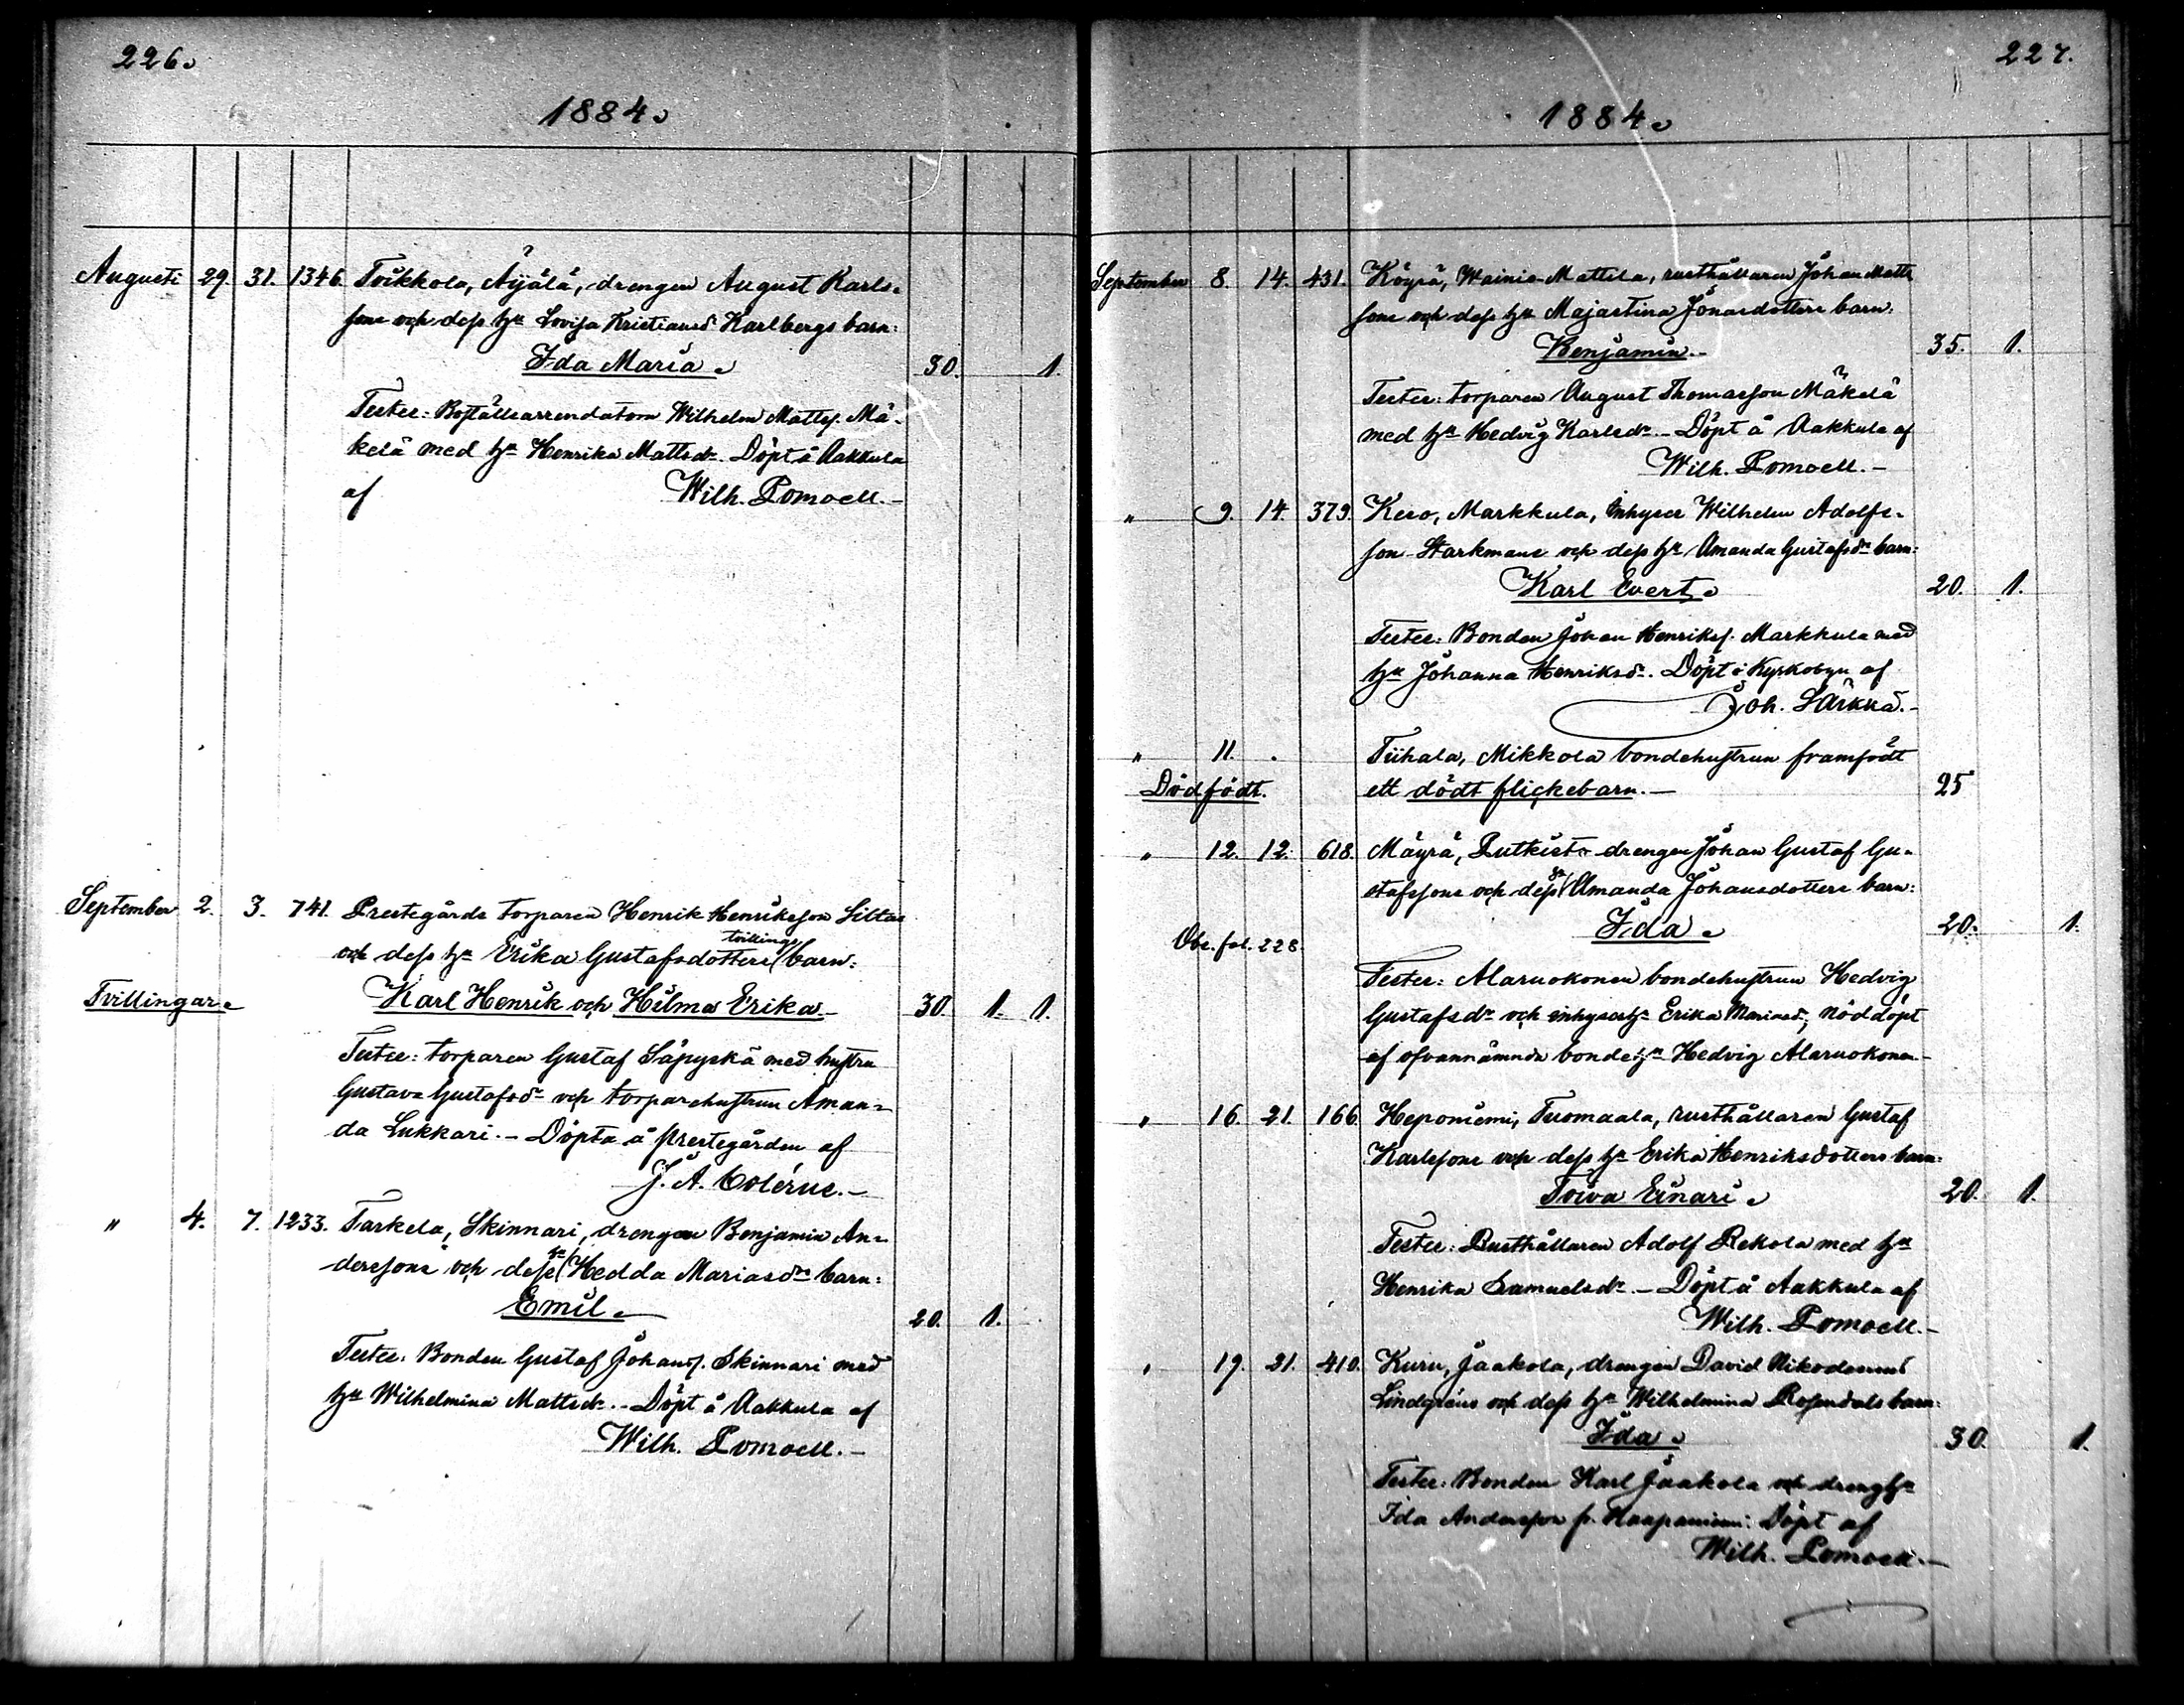 226.
1884.
Augusti 29. 31. 1346. Toikkola, Äijälä, drengen August Karls-
sons och dess hu Lovisa Kristiansdr Karlbergs barn:
Ida Maria. 30. 1.
Testes: Boställsarrendatorn Wilhelm Mattsf. Mä-
kelä med hu Henrika Mattsdr. Döpt å Aakkula
af Wilh. Pomoell.-
September 2. 3. 741. Prestegårds torparen Henrik Henriksson Siltas
tvillinge
och dess hu Erika Gustafsdotters barn:
Tvillingar. Karl Henrik och Hilma Erika 30. 1. 1.
Testes: torparen Gustaf Säpyskä med hustru
Gustava Gustafsdr och torparehustrun Aman-
da Lukkari. - Döpta å prestegården af
J. A. Colérus.-
" 4. 7. 1233. Tarkela, Skinnari, drengen Benjamin An-
derssons och dess hu Hedda Mariasdrs barn:
Emil. 20. 1.
Testes: Bonden Gustaf Johansf. Skinnari med
hu Wilhelmina Mattsdr. - Döpt å Aakkula af
Wilh. Pomoell.-
227.
1884.
September 8. 14. 431. Köyrä, Wainio-Mattila, rusthållaren Johan Matts
sons och dess hu Majastina Jonasdotters barn:
Benjamin.- 35. 1.
Testes: torparen August Thomasson Mäkelä
med hu Hedvig Karlsdr. - Döpt å Aakkula af
Wilh. Pomoell.-
" 9. 14. 379. Kero, Markkula, Inhyses Wilhelm Adolfs-
son Starkmans och dess hu Amanda Gustafsdrs barn:
Karl Evert. 20. 1.
Testes: Bonden Johan Henriksf. Markkula med
hu Johanna Henriksdr. Döpt i Kyrkobyn af
Joh. Särkkä.-
" 11. . Tiihala, Mikkola bondehustrun framfödt
Dödfödt. ett dödt flickebarn.- 25
" 12. 12. 618. Mäyrä, Putkisto drengen Johan Gustaf Gu-
stafssons och dess hu Amanda Johansdotters barn:
Ida. 20. 1.
Obs. fol. 228.
Testes: Alaruokonen bondehustrun Hedvig
Gustafsdr och inhyseshu Erika Mariasdr, nöddöpt
af ofvannämnda bondehu Hedvig Alaruokonen-
" 16. 21. 166. Heponiemi, Tuomaala, rusthållaren Gustaf
Karlssons och dess hu Erika Henriksdotters barn:
Toiva Einari. 20. 1.
Testes: Rusthållaren Adolf Rekola med hu
Henrika Samuelsdr. - Döpt å Aakkula af
Wilh. Pomoell.-
" 19. 21. 410. Kuru, Jaakola, drengen David Nikodemus
Lindgréns och dess hu Wilhelmina Rosendals barn:
Ida. 30. 1.
Testes: Bonden Karl Jaakola och drenghu
Ida Andersson fr. Haapaniemi. Döpt af
Wilh. Pomoell.-